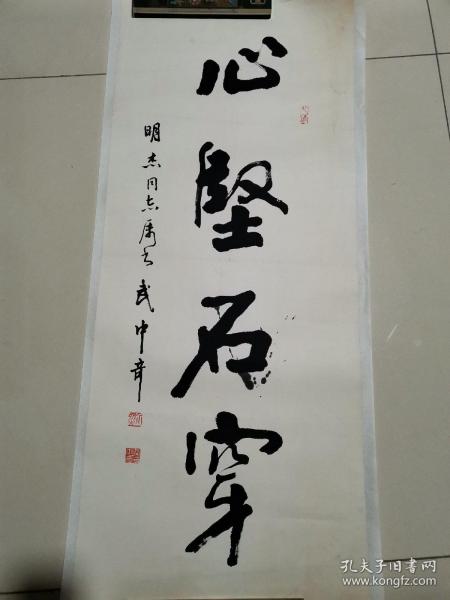 心堅石穿
明杰同志属书 武中奇
孔夫子旧书网
www.kongfz.com